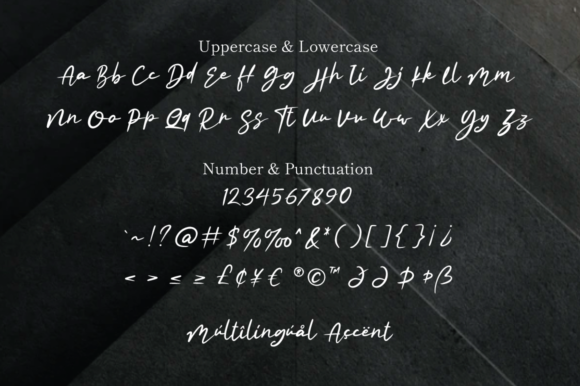 Uppercase & Lowercase
Aa Bb Cc Dd Ee Ff Gg Hh Ii Jj Kk Ll Mm
Nn Oo Pp Qq Rr Ss Tt Uu Vv Ww Xx Yy Zz
Number & Punctuation
1234567890
`~!?@#$%‰^&*()[]{}¡¿
<>≤≥£¢¥€®©™∂∂Þþß
Múltîlingúål Açcënt